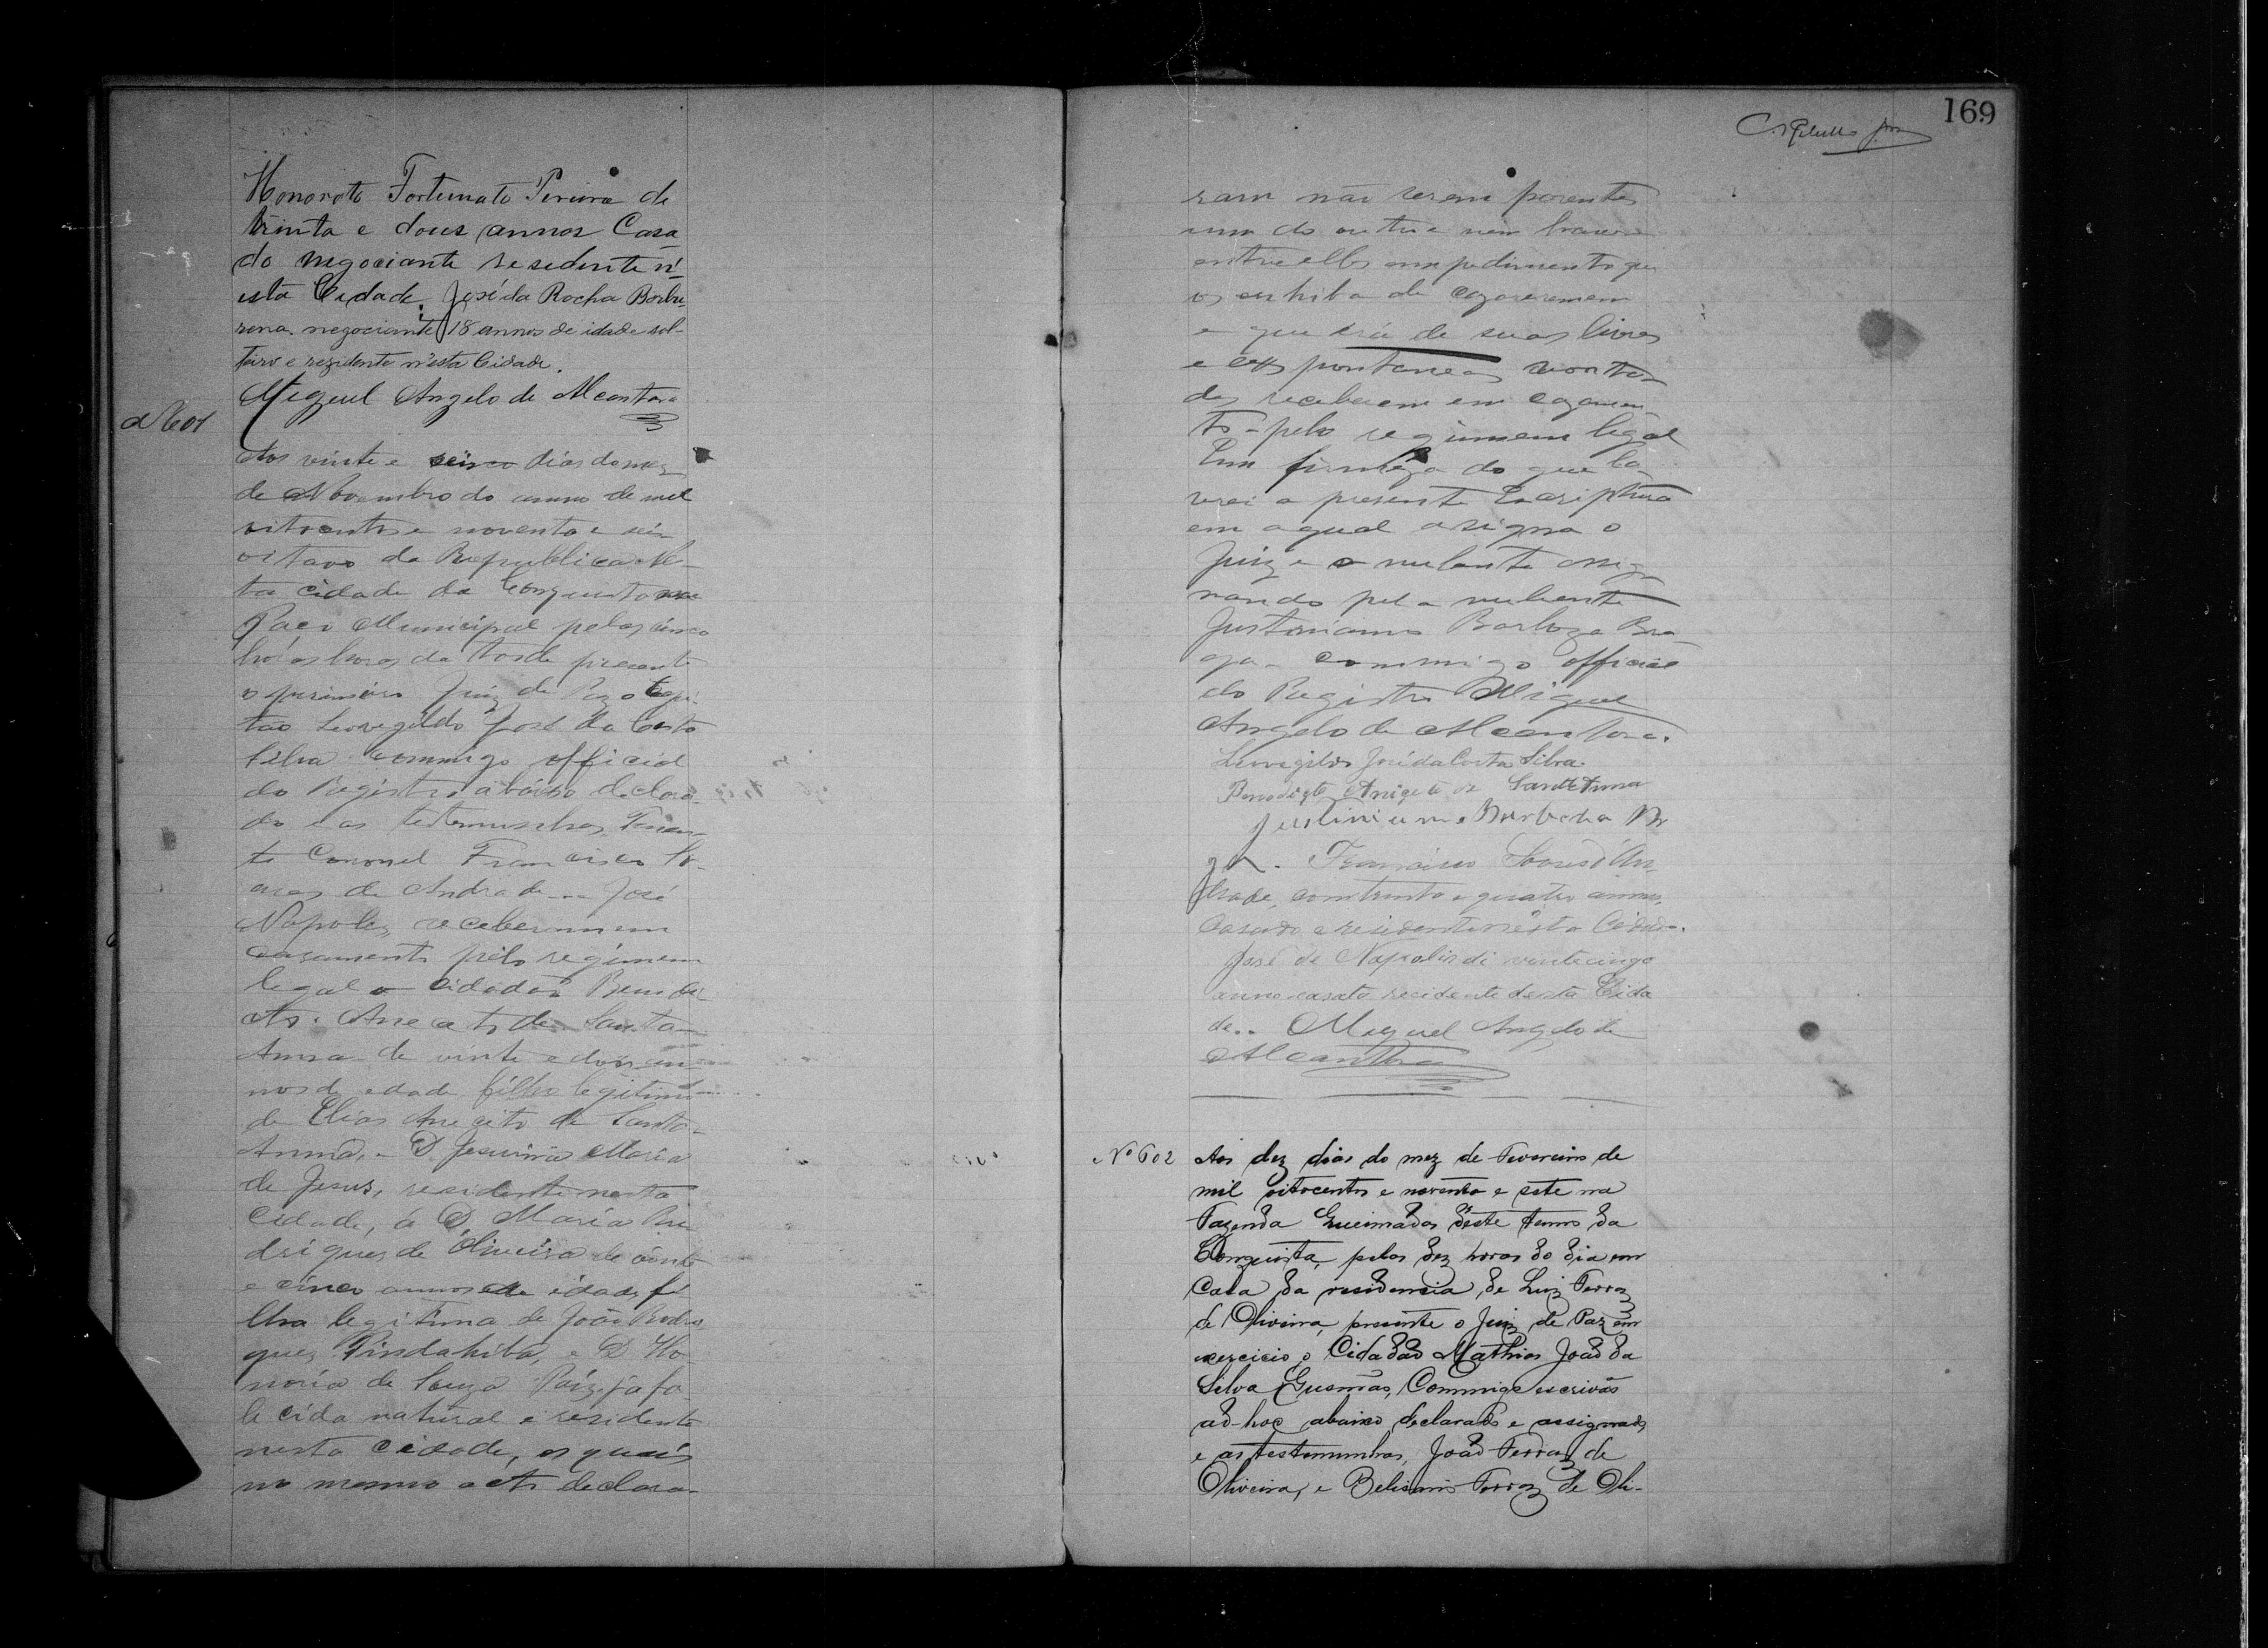 Honorato Fortunato Pereira de
trinta e dous annos Casa
do negociante residente n'
esta Cidade. José da Rocha Borbu
rema negociante 18 annos de idade sol-
teiro e rezidente n'esta Cidade.
Miguel Angelo de Alcantara
Nº 601
Aos vinte e seis dias do mez
de Novembro do anno de mil
oitocentos e noventa e seis
oitavo da Republica
ta cidade da Conquista
Paço Municipal pelas cinco
horas da tarde presente
o primeiro Juiz de Paz o Capi
tão Leovegildo José da Costa
Silva commigo official
do Registro abaixo declara-
do e as testemunhas Tenen-
te Coronel Francisco So-
ares de Andrade e José
Napoles, receberam em
casamento pelo regimem
legal o cidadão Benedi
cto Aneceto de Santa
Anna de vinte e dois an
nos de edade filho legitimo
de Elias Aneceto de Santa
Anna, e D Jesuina Maria
de Jesus, residente nesta
Cidade, a D. Maria Ro
drigues de Oliveira de vinte
e cinco annos de idade fi
lha legitima de João Rodri
gues Pindahiba, e D. Ho
noria de Souza ja fa
lecida natural e residente
nesta cidade, os quaes
no mesmo acto declara-
169
ram não serem parentes
um do outro e nem haver
entre elles impedimento que
os de
e que é de suas livres
e expontaneas vonta
des receberem em casamen
to pelo regimem legal
Em firmeza do que la
vrei a presente Escriptura
em a qual asigna o
Juiz e o nubente asig
nando pela nubente
Justiniano Barboza Bra
ga commigo official
do Registro Miguel
Angelo de Alcantara.
Leovegildo José da Costa Silva.
Benedicto Aniceto de Sant'Anna
Justiniano Barboza Br
ga. Francisco Soares d'An
drade, com trinta e quatro annos,
Casado e residente nésta Cidade.
José de Napolis di vintecinqo
anno casato recidente desta Cida
de.. Miguel Angelo de
Alcantara
Nº 602 Aos dez dias do mez de Fevereiro de
mil oitocentos e noventa e sete na
Fazenda Queimadas dêste termo da
Conquista, pelas dez horas do dia em
Casa da residencia de Luiz Ferraz
de Oliveira, presente o Juiz de Paz em
exercicio o Cidadão Mathias João da
Silva Gusmão, Commigo escrivão
ad-hoc abaixo declarado e assignado
e as testemunhas, João Ferraz de
Oliveira, e Belisario Ferraz de Oli-